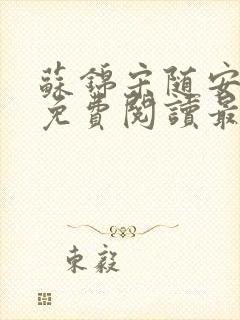 蘇錦宋随安
免費閱讀最
東毅